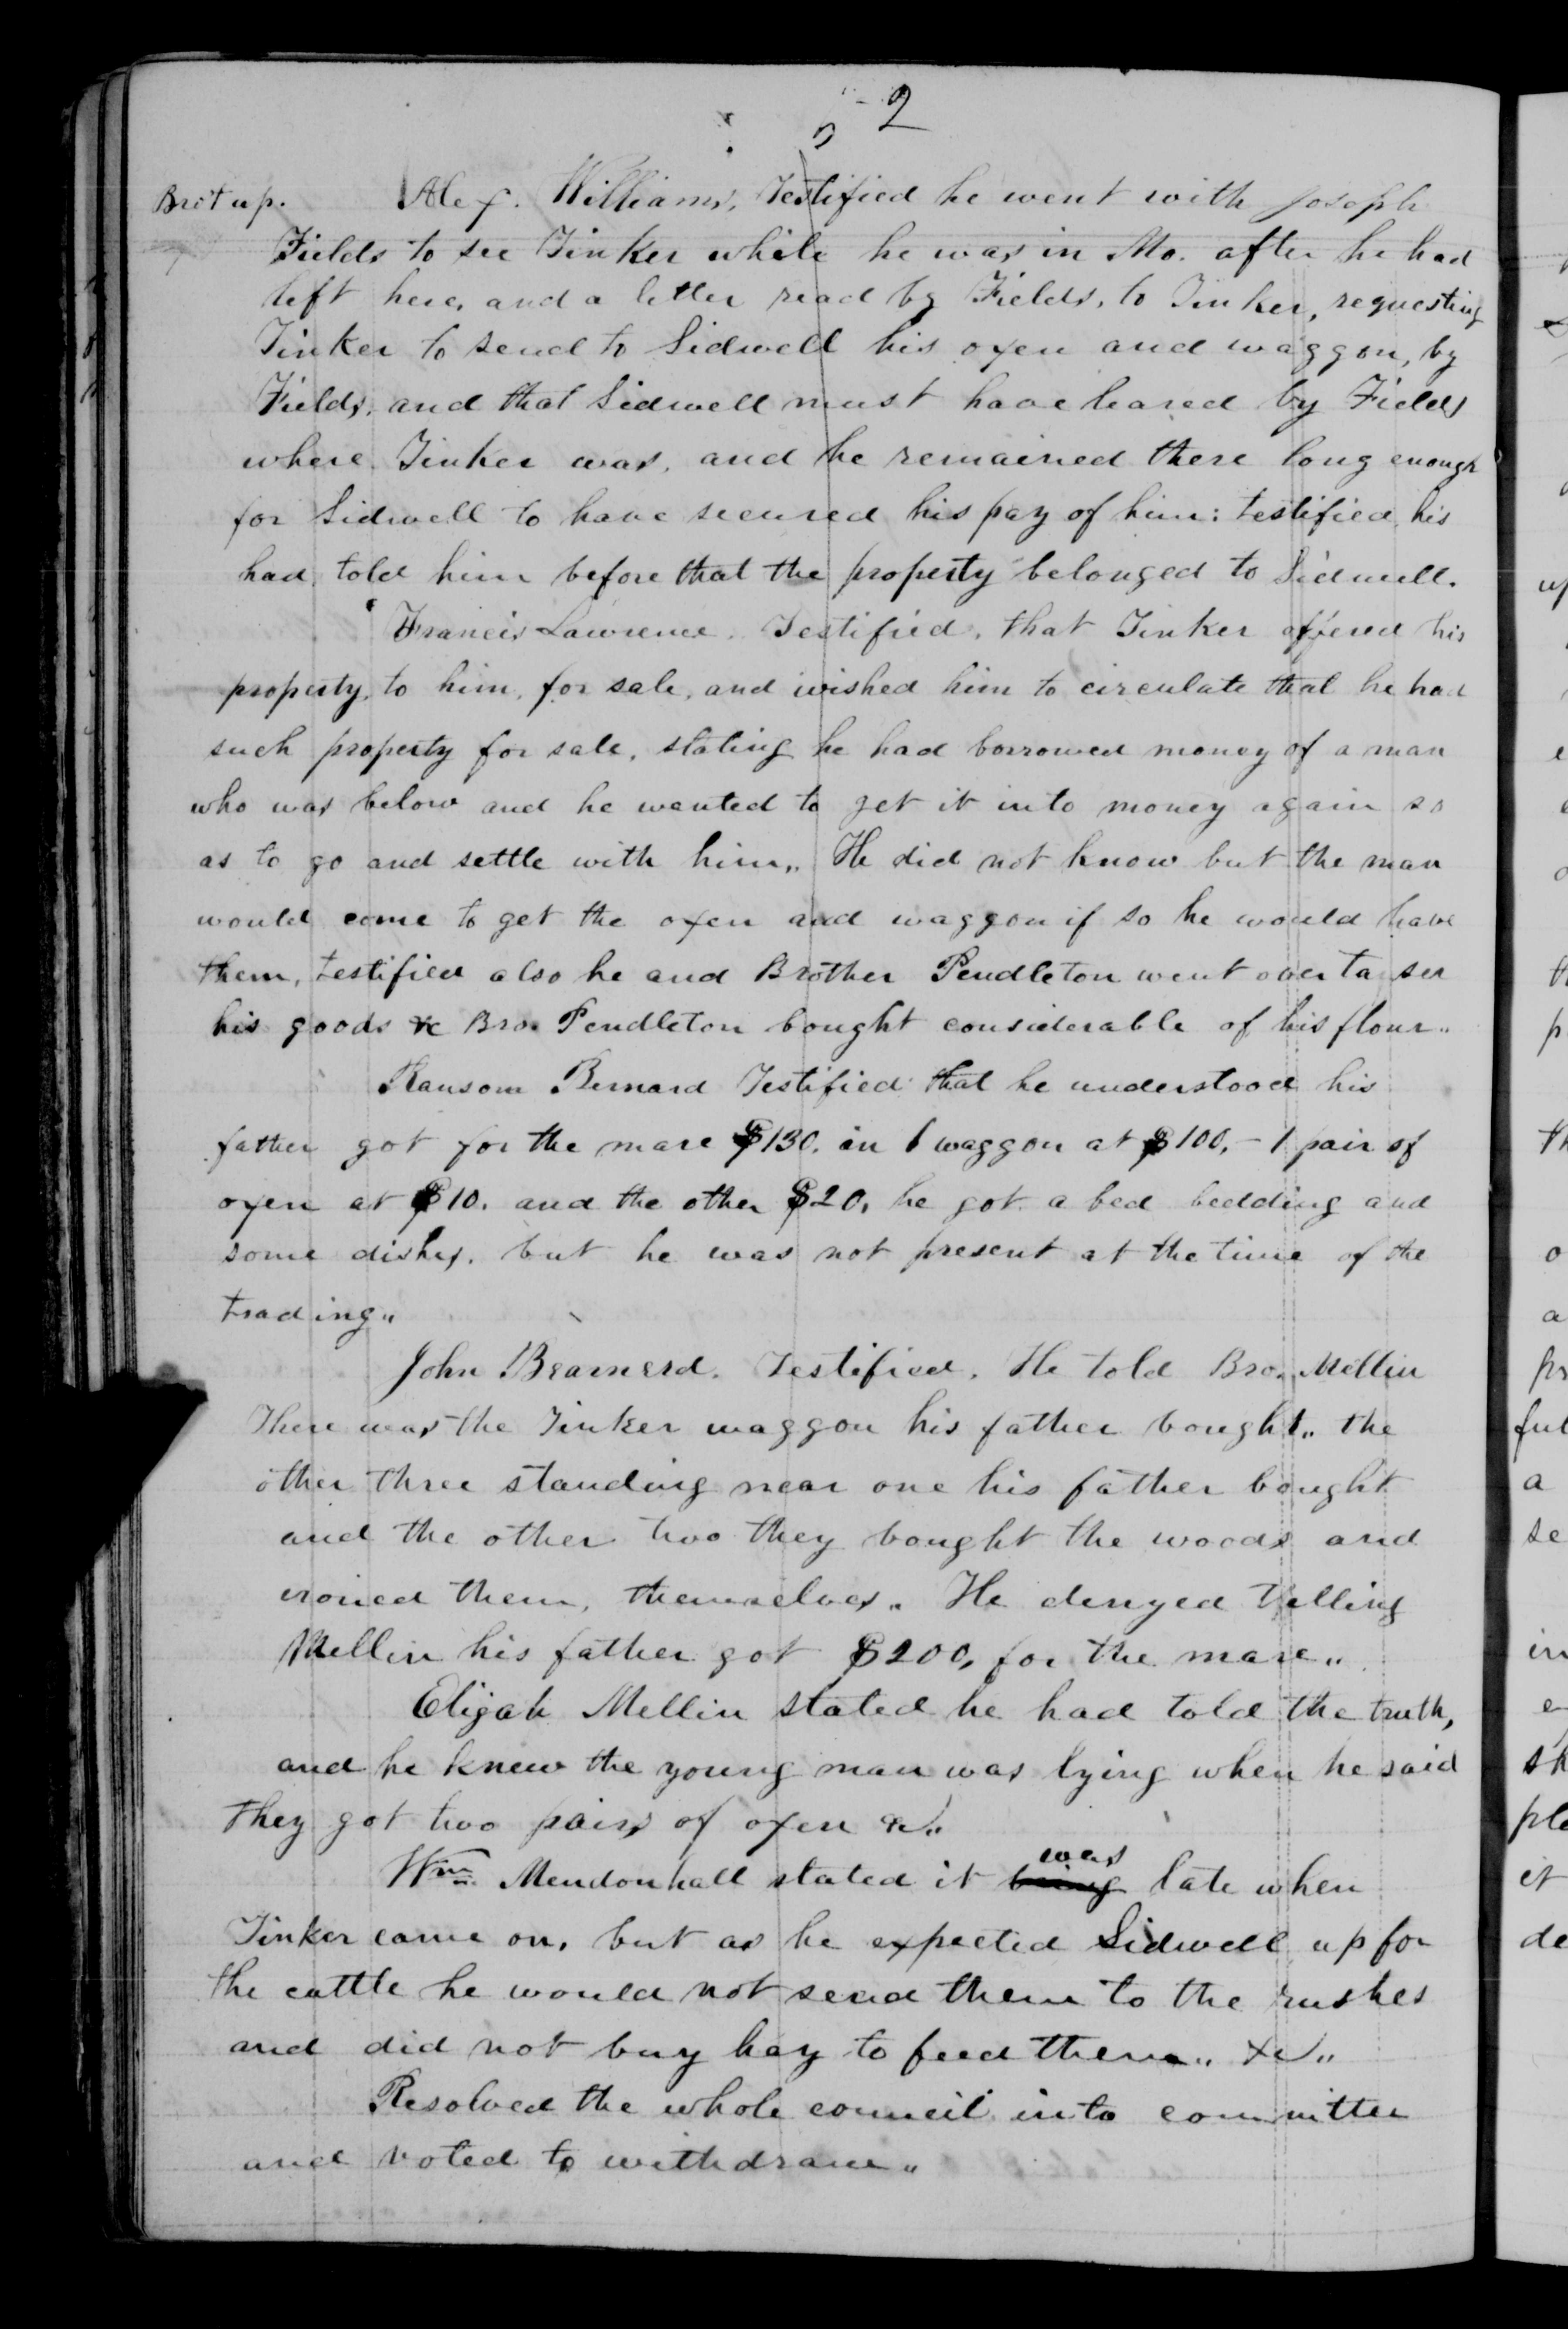 2
Brot up. Alex. Williams, Testified he went with Joseph
Fields to see Tinker while he was in Mo. after he had
left here, and a letter read by Fields, to Tinker, requesting
Tinker to send to Sidwell his oxen and waggon, by
Fields, and that Sidwell must have leared by Fields
where Tinker was, and he remained there long enough
for Sidwell to have secured his pay of him: testified his
had told him before that the property belonged to Sidwell.
Francis Lawrence. Testified, that Tinker offered his
property, to him, for sale, and wished him to circulate that he had
such property for sale, stating he had borrowed money of a man
who was below and he wanted to get it into money again so
as to go and settle with him,, He did not know but the man
would come to get the oxen and waggon if so he would have
them, testified also he and Brother Pendleton went over to see
his goods &c Bro. Pendleton bought considerable of his flour,,
Ransom Bernard Testified that he understood his
father got for the mare $130. in 1 waggon at $100, - 1 pair of
oxen at $10. and the other $20, he got a bed bedding and
some dishes. but he was not present at the time of the
trading,,
John Bearnerd. Testified. He told Bro. Mellin
There was the Tinker waggon his father bought,, the
other three standing near one his father bought
and the other two they bought the woods and
ironed them, themselves. He denyed telling
Mellin his father got $200, for the mare,,
Elijah Mellin stated he had told the truth,
and he knew the young man was lying when he said
they got two pairs of oxen &c,,
Wm. Mendonhall stated it being was late when
Tinker came on, but as he expected Sidwell up for
the cattle he would not send them to the rushes
and did not buy hay to feed them,, &c,,
Resolved the whole council into committee
and voted to withdraw,,